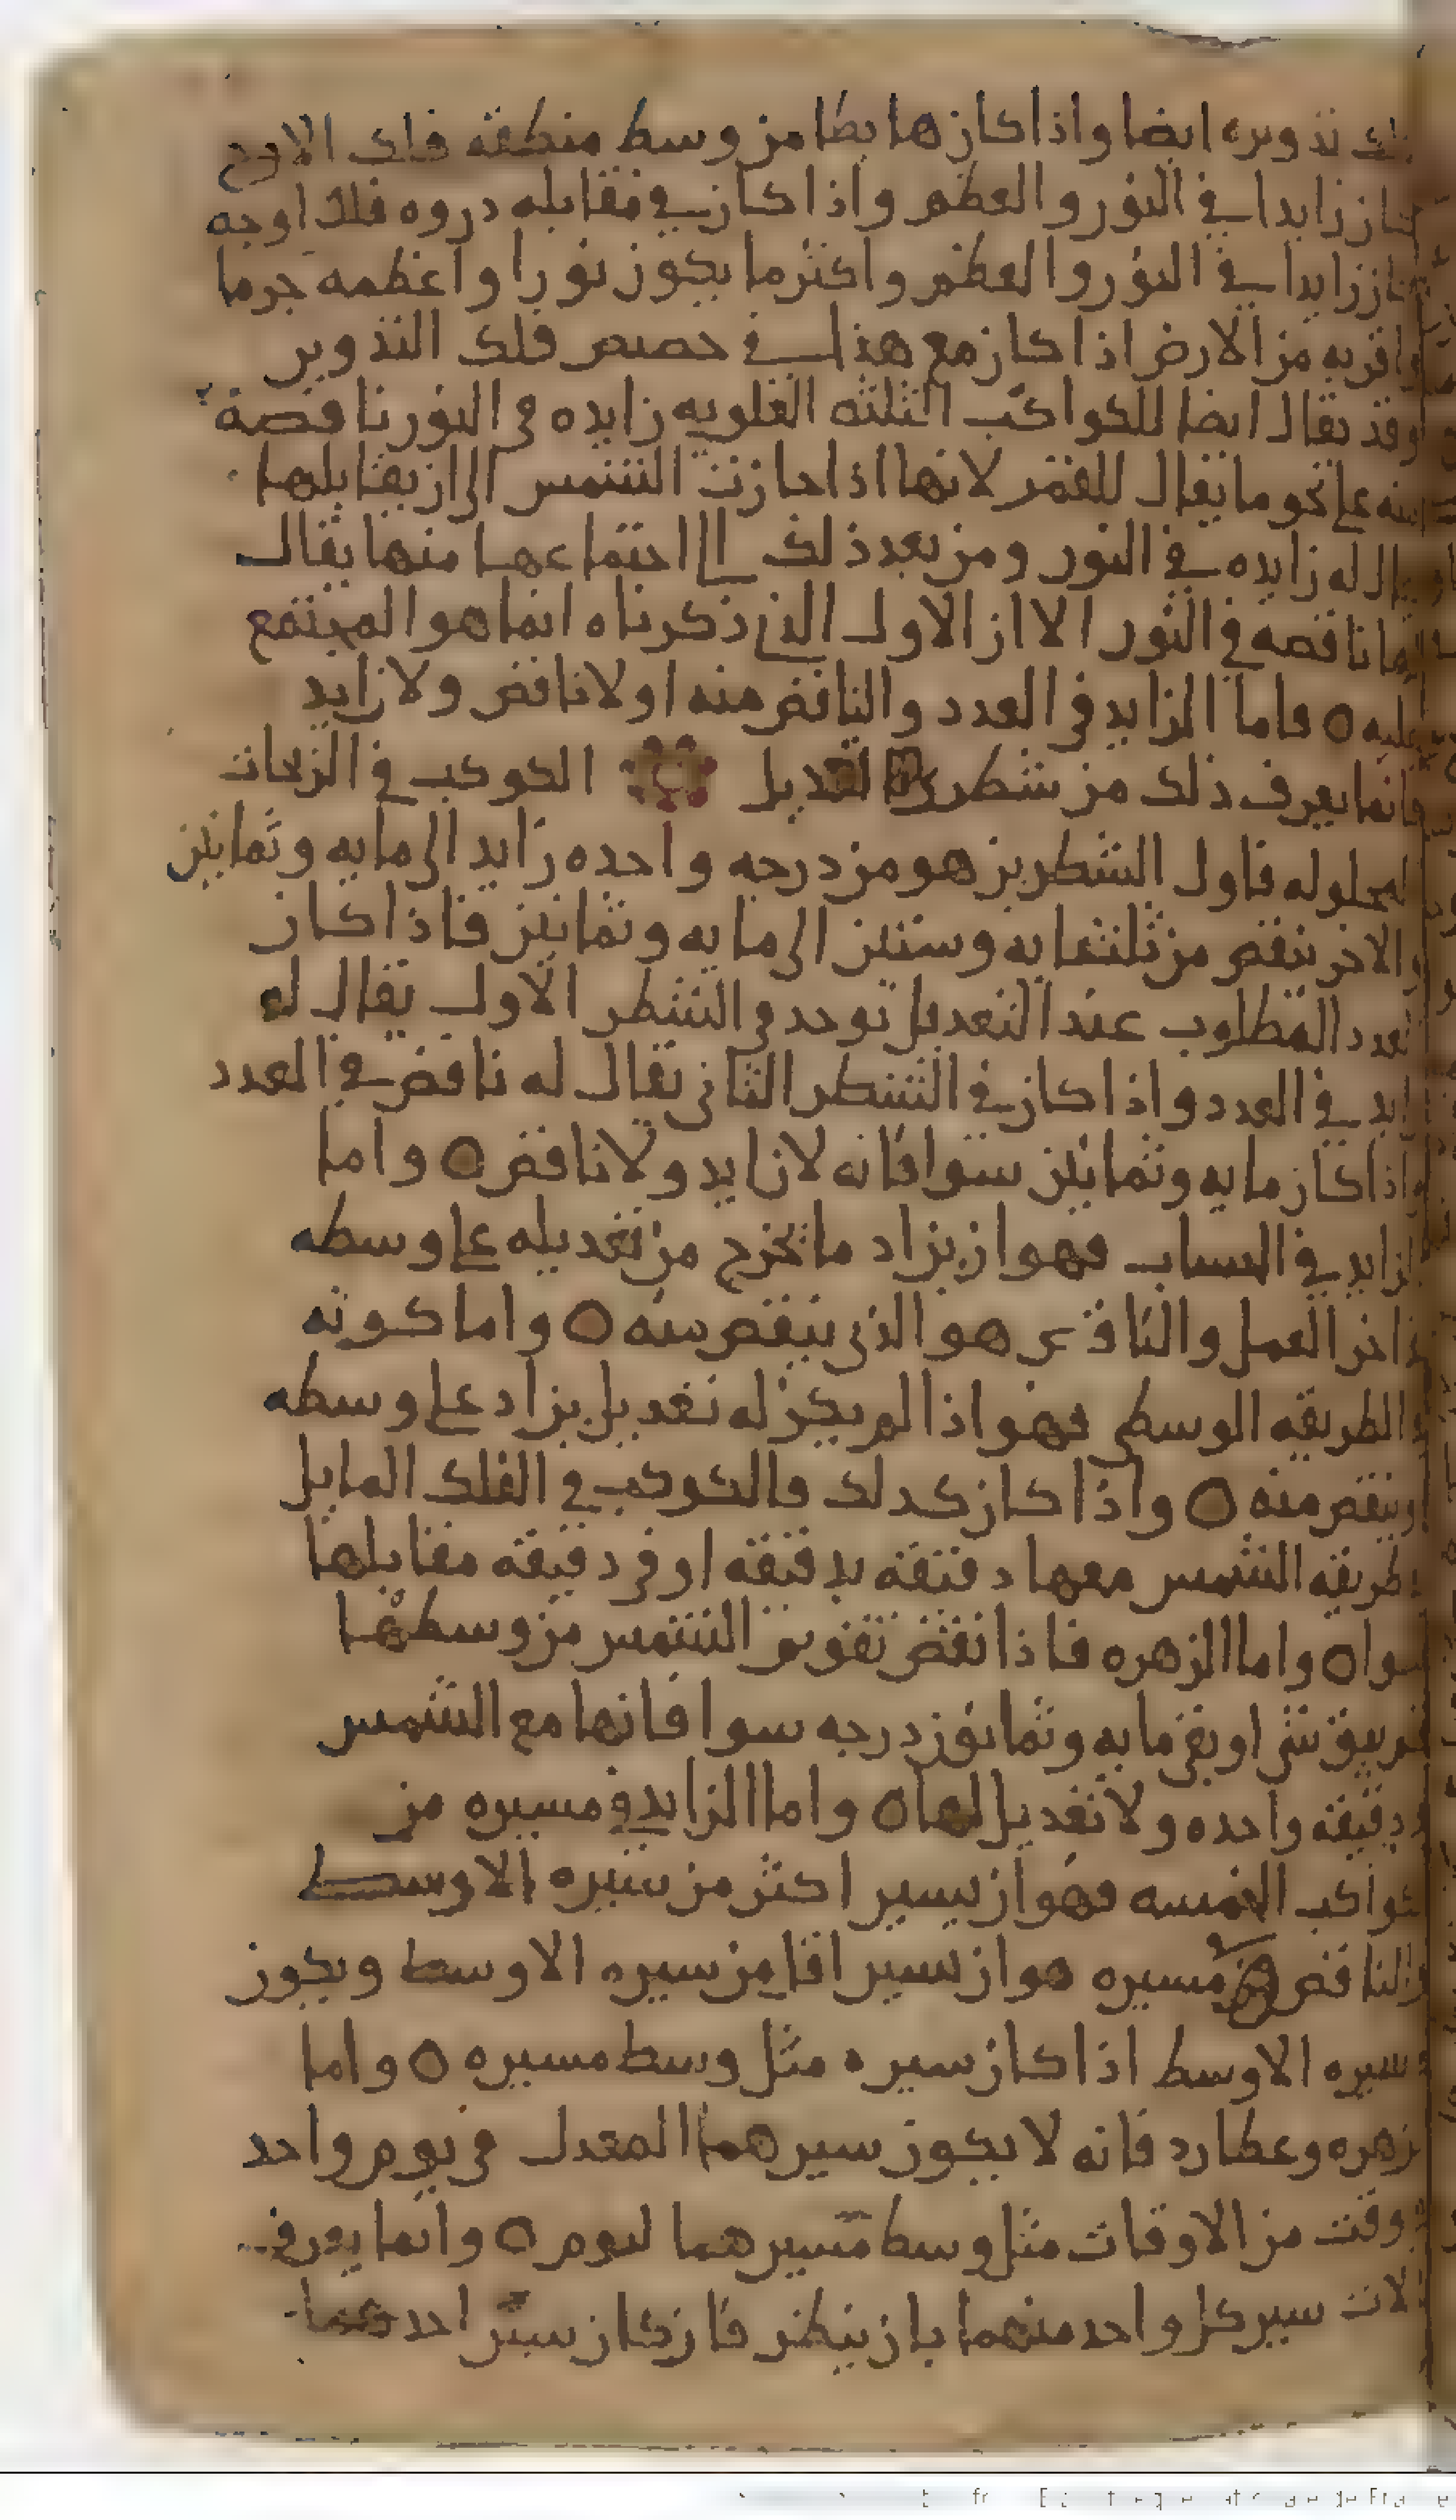 تدويره ايضا واذا كان هابطا من وسط منطقه فلك الاوج
كان زايدا في النور والعظم واذا كان في مقابله دروه فلك اوجه
كان زايدا في النور والعظم واكثر ما يكون نورا واعظمه جرما
واقربه من الارض اذا كان مع هذا في حضيض فلك التدوير
وقد يقال ايضا للكواكب الثلثه العلويه زايده في النور ناقصة
منه على نحو ما يقال للقمر لانها اذا جازت الشمس الى ان يقابلها
يقال له زايده في النور ومن بعد ذلك الى اجتماعها منها يقال
لها ناقصه في النور الا ان الاول الذي ذكرناه انما هو المجتمع
عليه ٥ فاما الزايد في العدد والناقص منه او لا ناقص ولا زايد
فانما يعرف ذلك من شطري التعديل الكوكب في الزيجات
المحلوله فاول الشطرين هو من درجه واحده زايد الى مايه وثمانين
والاخر ينقص من ثلثمايه وستين الى مايه وثمانين فاذا كان
العدد المطلوب عند التعديل توجد في الشطر الاول يقال له
زايد في العدد واذا كان في الشطر الثاني يقال له ناقص في العدد
واذا كان مايه وثمانين سوا فانه لا زايد ولا ناقص ٥ واما
الزايد في الحساب فهو ان يزاد ما يخرج من تعديله على وسطه
في اخر العمل والناقص هو الذي ينقص منه ٥ واما كونه
في الطريقه الوسطى فهو اذا لم يكن له تعديل يزاد على وسطه
او ينقص منه ٥ واذا كان كدلك فالكوكب في الفلك المايل
بطريقه الشمس معها دقيقه بدقيقه او في دقيقه مقابلها
سوا ٥ واما الزهره فاذا نقص تقويم الشمس من وسطها
فلم يبق شي او بقى مايه وثمانون درجه سوا فانها مع الشمس
في دقيقه واحده ولا تعديل لها ٥ واما الزايد في مسيره من
الكواكب الخمسه فهو ان يسير اكثر من سيره الاوسط
والناقص من مسيره هو ان يسير اقل من سيره الاوسط ويكون
سيره الاوسط اذا كان سيره مثل وسط مسيره ٥ واما
الزهره وعطارد فانه لا يكون سيرهما المعدل في يوم واحد
وقت من الاوقات مثل وسط مسيرهما ليوم ٥ وانما يعرف
حالات سير كل واحد منهما بان ينظر فان كان سير احدهما